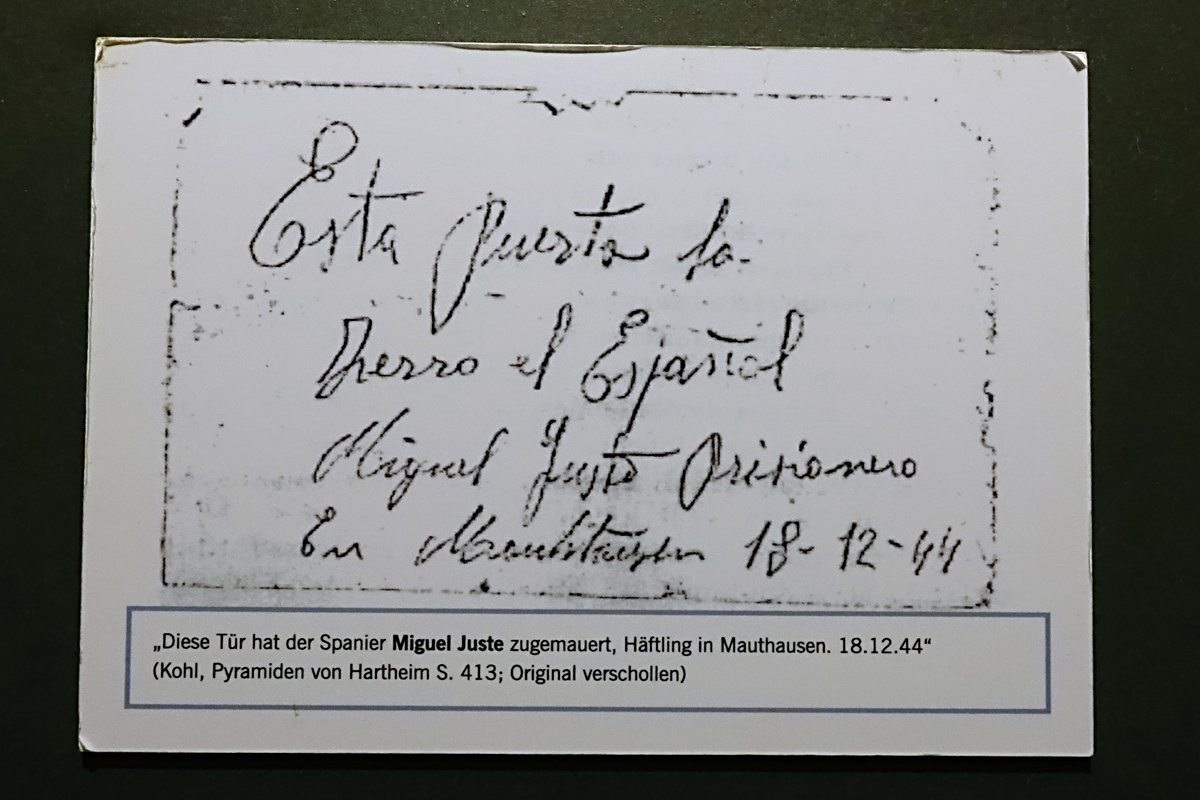 Esta puerta la
Zierro el Español
Miguel Justo Prisionero
En Mauhtausen 18-12-44
„Diese Tür hat der Spanier Miguel Juste zugemauert, Häftling in Mauthausen. 18.12.44“
(Kohl, Pyramiden von Hartheim S. 413; Original verschollen)